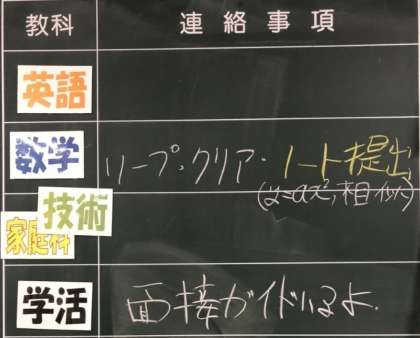 教科 連絡事項
英語
数学 リープ・クリア・ノート提出
(y=ax², 相似)
技術
家庭科
学活 面接ガイドいるよ.